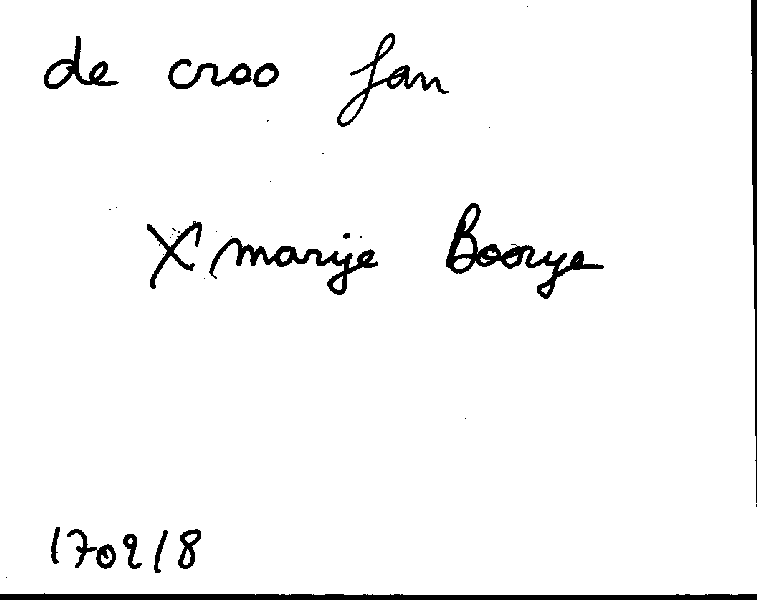 de croo Jan
X marije Boorye
170218